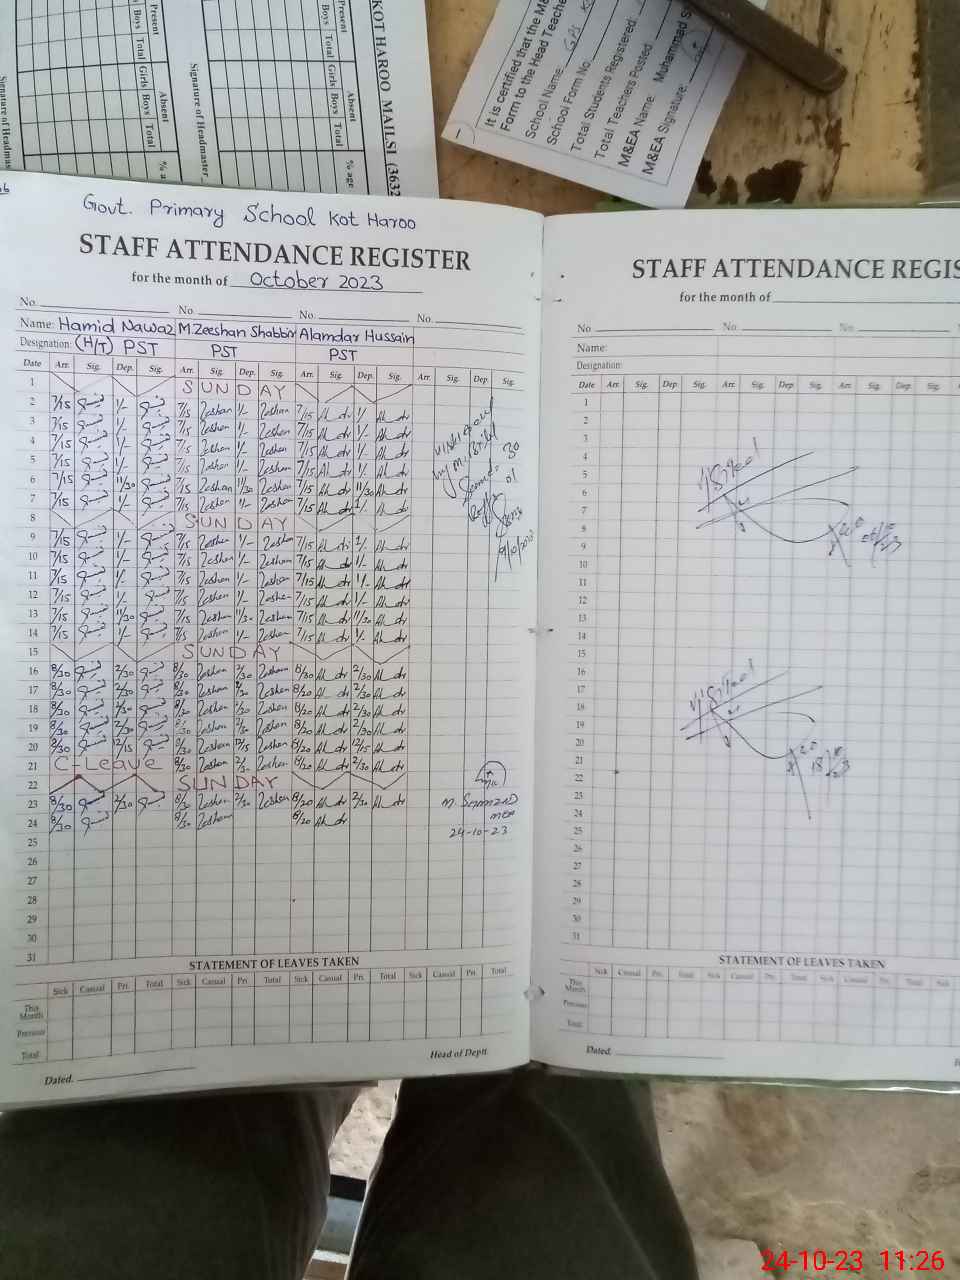 KOT HAROO MAILSI (3632
Present
Absent
Boys Total Girls Boys Total % age
Signature of Headmaster
Present
Absent
Boys Total Girls Boys Total
Signature of Headmas
It is certified that the M&
Form to the Head Teache
School Name: GPS
School Form No.
Total Students Registered
Total Teachers Posted
M&EA Name: Muhammad S
M&EA Signature:
Govt. Primary School Kot Haroo
STAFF ATTENDANCE REGISTER
for the month of October 2023
No. No. No. No.
Name: Hamid Nawaz M.Zeeshan Shabbir Alamdar Hussain
Designation: (H/T) PST PST PST
Date Arr. Sig. Dep. Sig. Arr. Sig. Dep. Sig. Arr. Sig. Dep. Sig. Arr. Sig. Dep. Sig.
1 SUNDAY
2 7/15 1/- 7/15 Zeshan 1/- Zeshan 7/15 1/-
3 7/15 1/- 7/15 Zeshan 1/- Zeshan 7/15 1/-
4 7/15 1/- 7/15 Zeshan 1/- Zeshan 7/15 1/-
5 7/15 1/- 7/15 Zeshan 1/- Zeshan 7/15 1/-
6 7/15 11/30 7/15 Zeshan 11/30 Zeshan 7/15 11/30
7 7/15 1/- 7/15 Zeshan 1/- Zeshan 7/15 1/-
8 SUNDAY
9 7/15 1/- 7/15 Zeshan 1/- Zeshan 7/15 1/-
10 7/15 1/- 7/15 Zeshan 1/- Zeshan 7/15 1/-
11 7/15 1/- 7/15 Zeshan 1/- Zeshan 7/15 1/-
12 7/15 1/- 7/15 Zeshan 1/- Zeshan 7/15 1/-
13 7/15 11/30 7/15 Zeshan 11/30 Zeshan 7/15 11/30
14 7/15 1/- 7/15 Zeshan 1/- Zeshan 7/15 1/-
15 SUNDAY
16 8/30 2/30 8/30 Zeshan 2/30 Zeshan 8/30 2/30
17 8/30 2/30 8/30 Zeshan 2/30 Zeshan 8/20 2/30
18 8/30 2/30 8/30 Zeshan 2/30 Zeshan 8/20 2/30
19 8/30 2/30 8/30 Zeshan 2/30 Zeshan 8/20 2/30
20 8/30 12/15 8/30 Zeshan 12/15 Zeshan 8/20 12/15
21 C-Leave 8/30 Zeshan 2/30 Zeshan 8/20 2/30
22 SUNDAY
23 8/30 2/30 8/30 Zeshan 2/30 Zeshan 8/20 2/30
24 8/30 8/30 Zeshan 8/20
25
26
27
28
29
30
31
24-10-23
STATEMENT OF LEAVES TAKEN
Sick Casual Pri. Total Sick Casual Pri. Total Sick Casual Pri. Total Sick Casual Pri. Total
This Month
Previous
Total
Head of Deptt.
Dated.
STAFF ATTENDANCE REGIS
for the month of
No. No. No.
Name:
Designation:
Date Arr. Sig. Dep. Sig. Arr. Sig. Dep. Sig. Arr. Sig. Dep. Sig.
1
2
3
4
5
6
7
8
9
10
11
12
13
14
15
16
17
18
19
20
21
22
23
24
25
26
27
28
29
30
31
Visited
Visited
STATEMENT OF LEAVES TAKEN
Sick Casual Pri. Total Sick Casual Pri. Total Sick Casual Pri. Total Sick
This Month
Previous
Total
Dated.
24-10-23 11:26